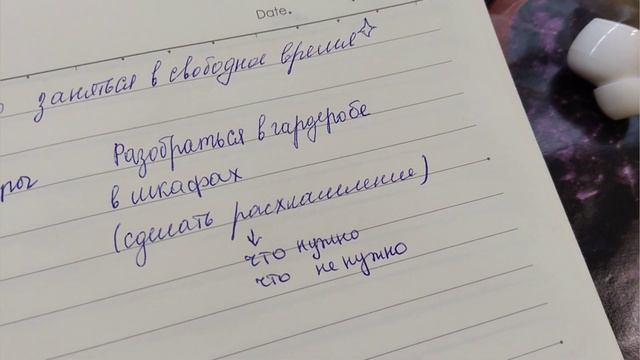 Date.
заняться в свободное время
Разобраться в гардеробе
в шкафах
(сделать расхламление)
что нужно
что не нужно